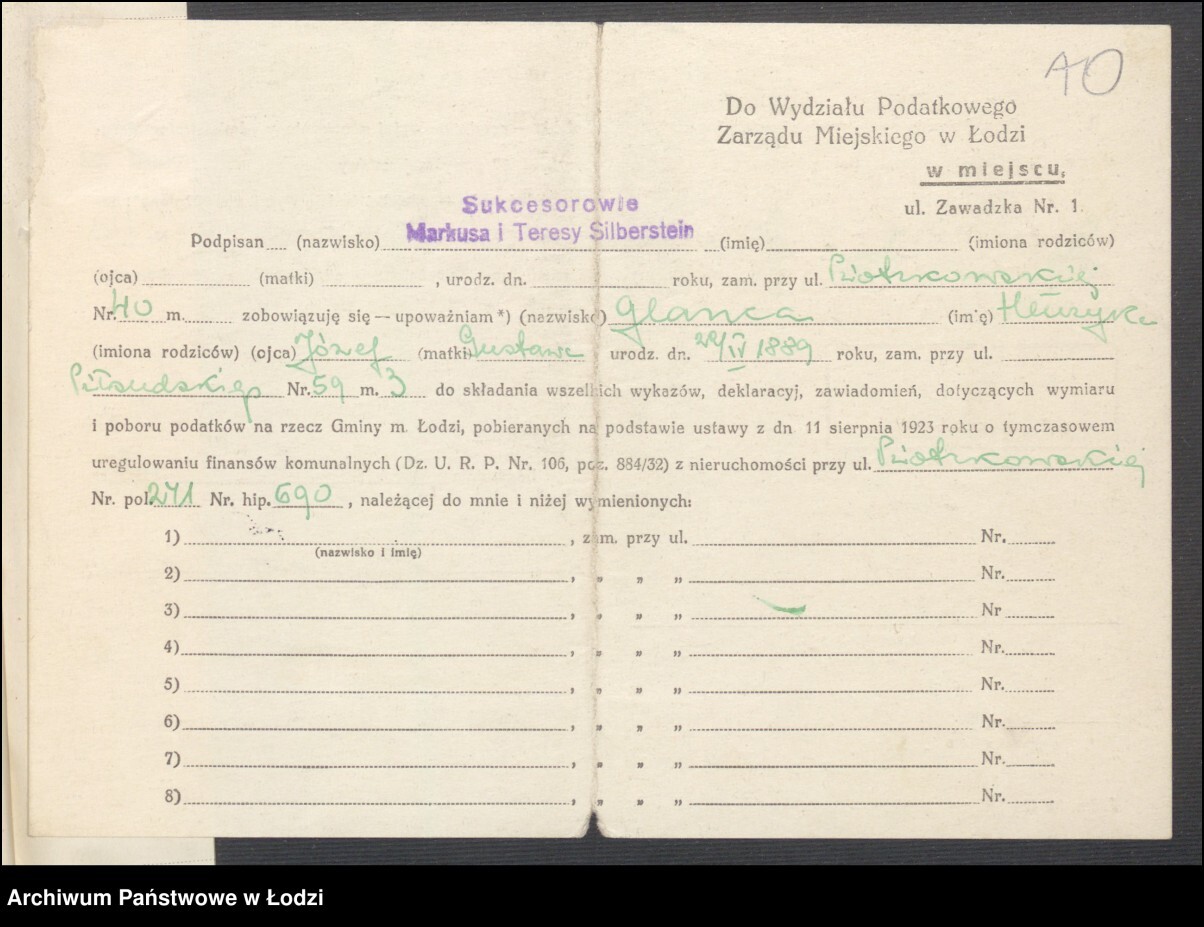 40
Do Wydziału Podatkowego
Zarządu Miejskiego w Łodzi
w miejscu,
ul. Zawadzka Nr. 1.
Sukcesorowie
Podpisan.... (nazwisko) Markusa i Teresy Silberstein (imię) (imiona rodziców)
(ojca) (matki) , urodz. dn. roku, zam. przy ul. Piotrkowskiej
Nr. 40 m. zobowiązuję się — upoważniam *) (nazwisko) Glanca (imię) Henryka
(imiona rodziców) (ojca) Józef (matki) Gustawa urodz. dn. 29/IV 1889 roku, zam. przy ul.
Piłsudskiego Nr. 59 m. 3 do składania wszelkich wykazów, deklaracyj, zawiadomień, dotyczących wymiaru
i poboru podatków na rzecz Gminy m. Łodzi, pobieranych na podstawie ustawy z dn. 11 sierpnia 1923 roku o tymczasowem
uregulowaniu finansów komunalnych (Dz. U. R. P. Nr. 106, poz. 884/32) z nieruchomości przy ul. Piotrkowskiej
Nr. pol. 271 Nr. hip. 690 , należącej do mnie i niżej wymienionych:
1) , zam. przy ul. Nr.
(nazwisko i imię)
2) , „ „ „ Nr.
3) , „ „ „ Nr
4) , „ „ „ Nr.
5) , „ „ „ Nr.
6) , „ „ „ Nr.
7) , „ „ „ Nr.
8) , „ „ „ Nr.
Archiwum Państwowe w Łodzi